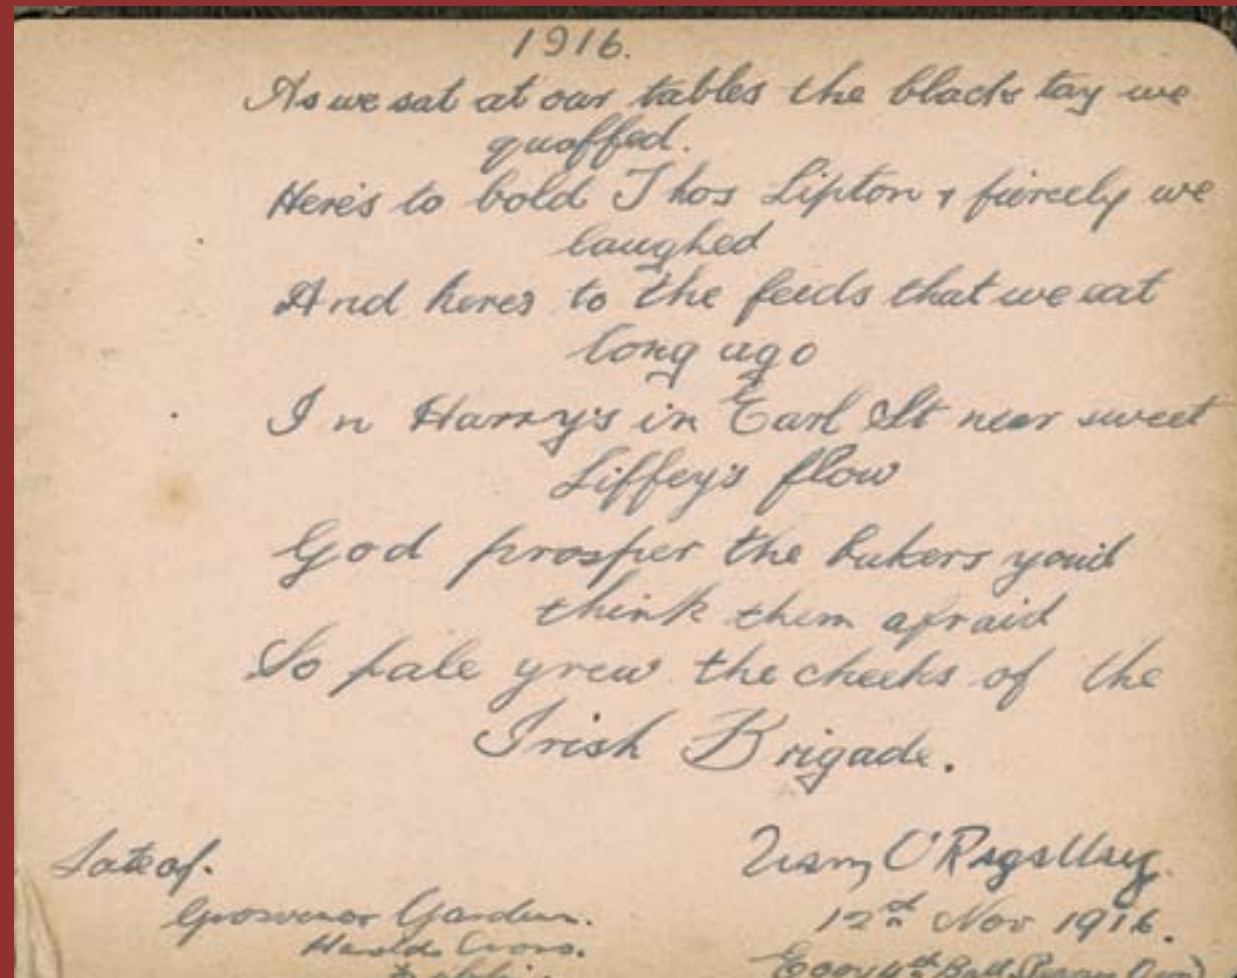 1916.
As we sat at our tables the black tay we
quaffed.
Here's to bold Thos Lipton & fiercely we
laughed
And heres to the feeds that we eat
long ago
In Harry's in Earl St near sweet
Liffey's flow
God prosper the bakers you'd
think them afraid
So pale grew the cheeks of the
Irish Brigade.
Late of.
Grosvenor Garden.
Harolds Cross.
12th Nov 1916.